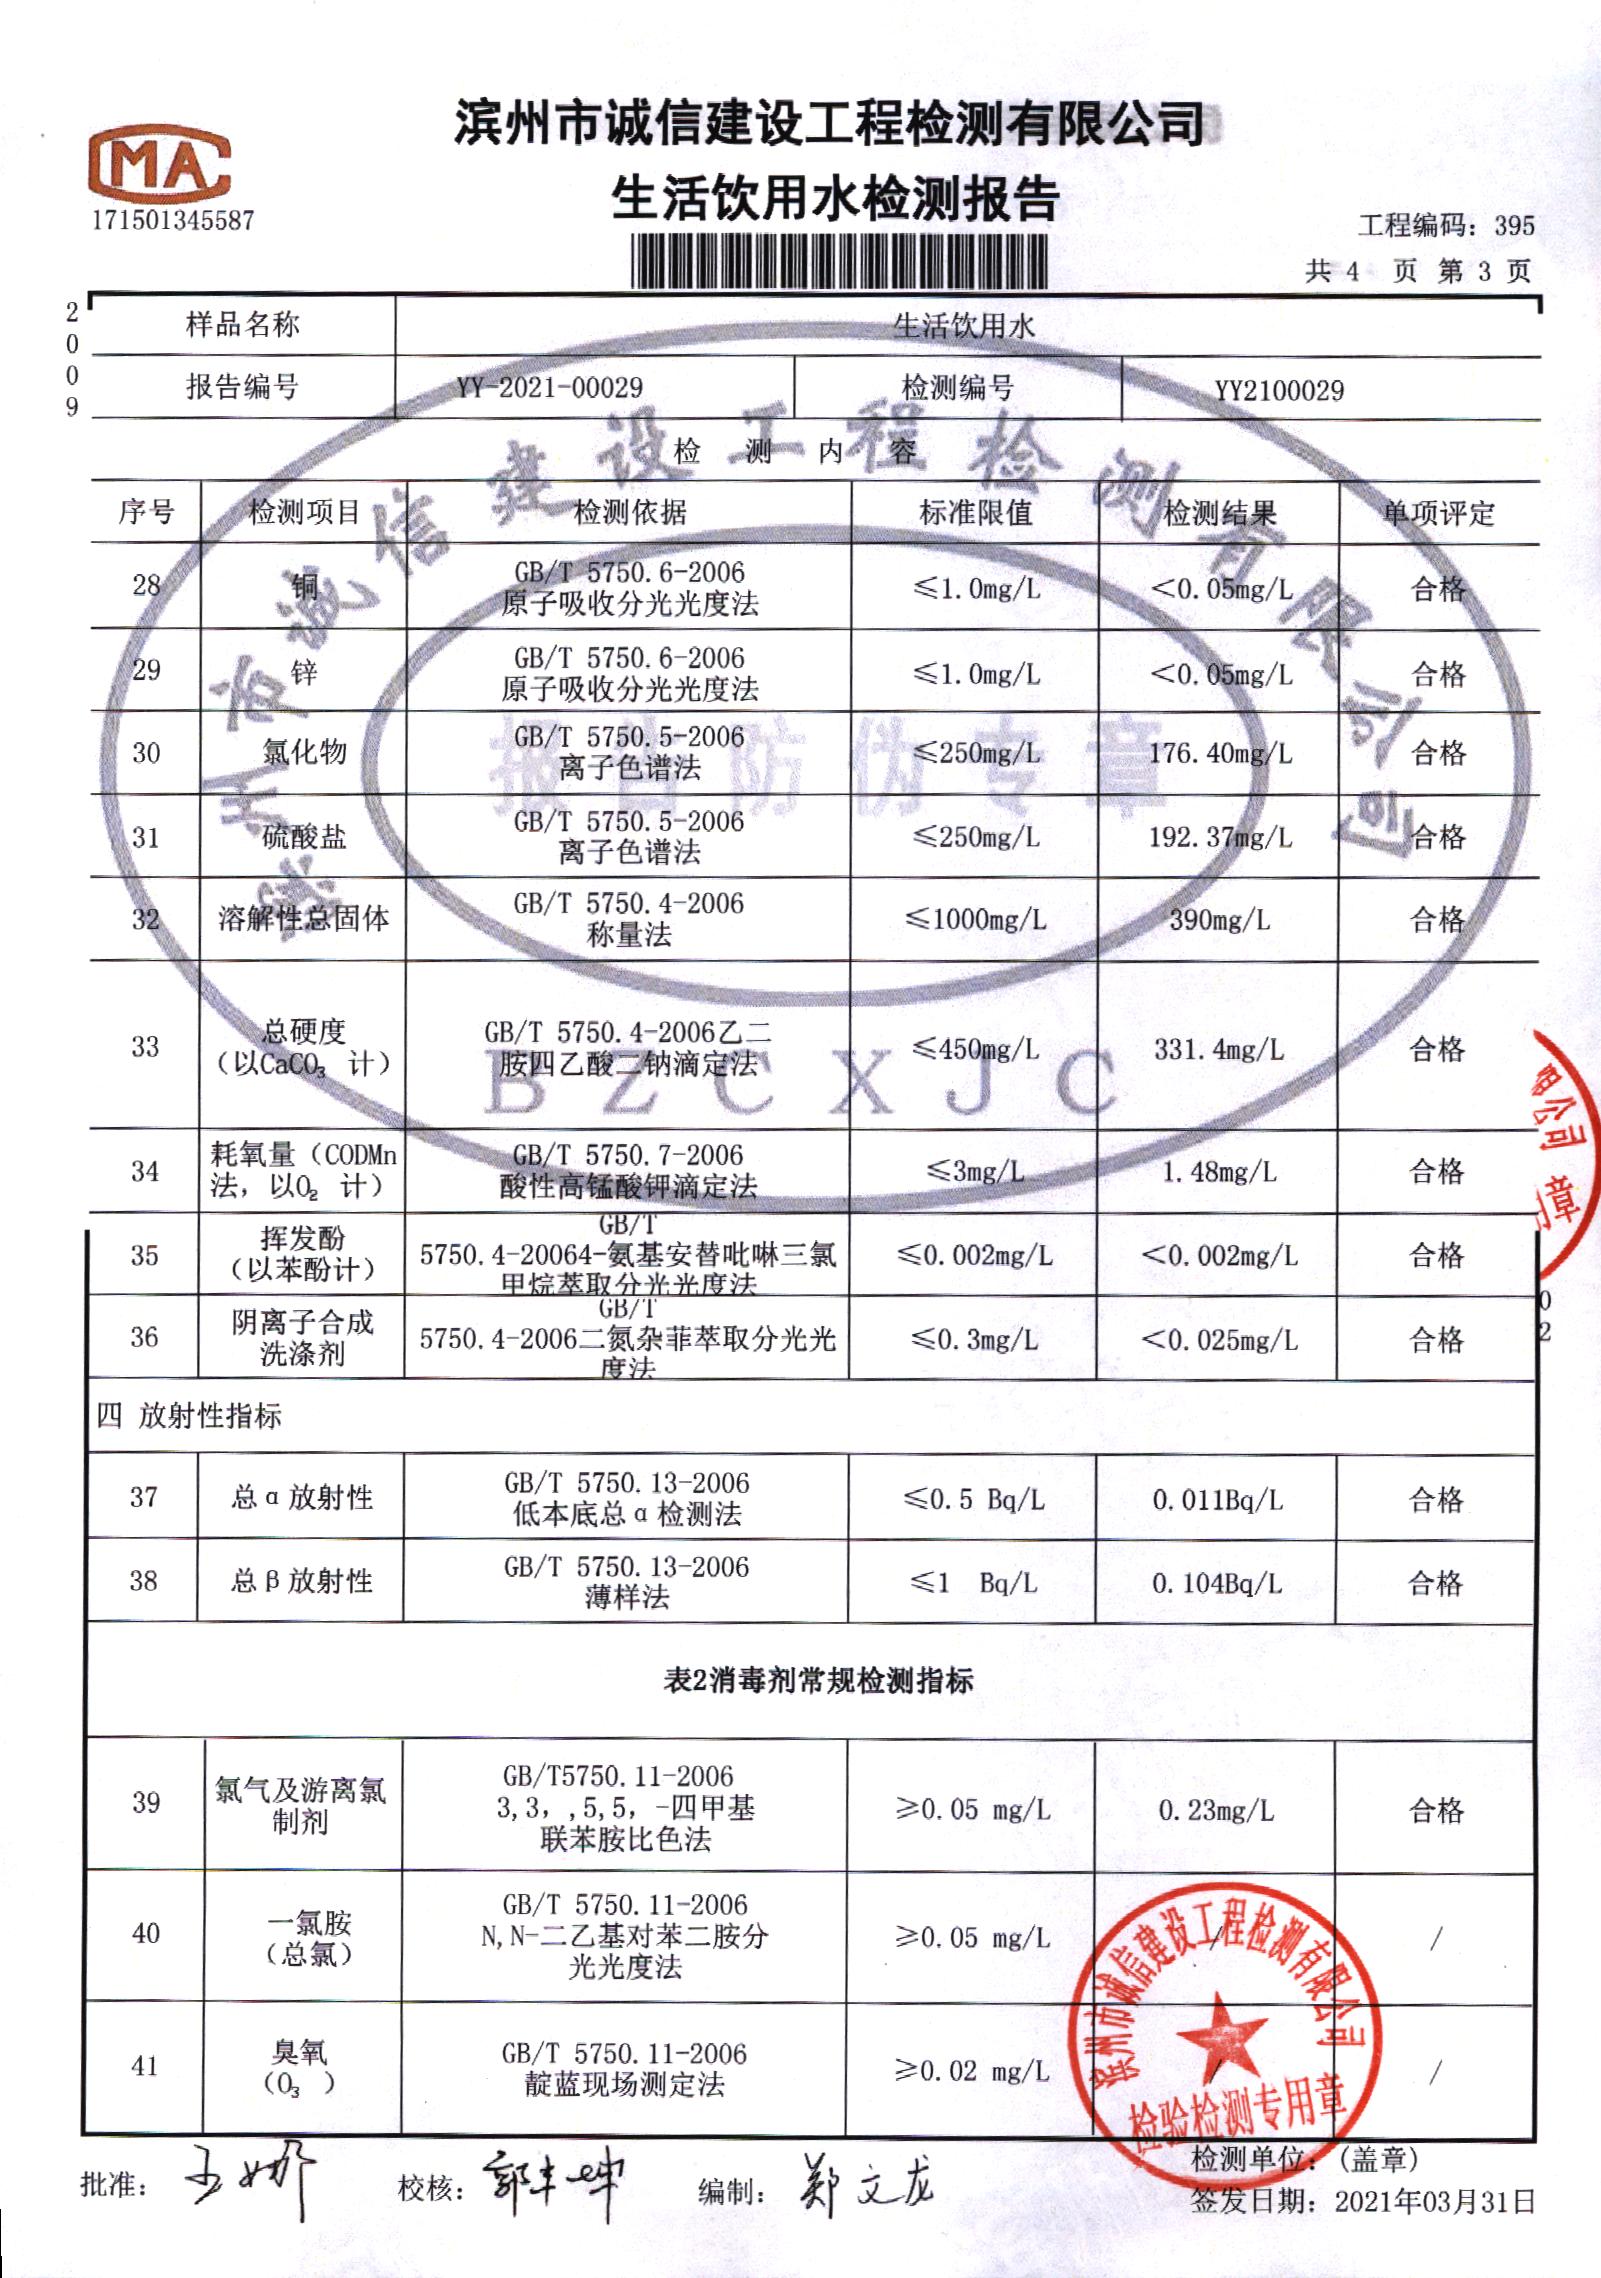 滨州市诚信建设工程检测有限公司
生活饮用水检测报告
CMA
171501345587
工程编码：395
共 4 页 第 3 页
2009
样品名称 生活饮用水
报告编号 YY-2021-00029 检测编号 YY2100029
检 测 内 容
序号 检测项目 检测依据 标准限值 检测结果 单项评定
28 铜 GB/T 5750.6-2006 ≤1.0mg/L <0.05mg/L 合格
原子吸收分光光度法
29 锌 GB/T 5750.6-2006 ≤1.0mg/L <0.05mg/L 合格
原子吸收分光光度法
30 氯化物 GB/T 5750.5-2006 ≤250mg/L 176.40mg/L 合格
离子色谱法
31 硫酸盐 GB/T 5750.5-2006 ≤250mg/L 192.37mg/L 合格
离子色谱法
32 溶解性总固体 GB/T 5750.4-2006 ≤1000mg/L 390mg/L 合格
称量法
33 总硬度 GB/T 5750.4-2006乙二 ≤450mg/L 331.4mg/L 合格
（以CaCO₃ 计） 胺四乙酸二钠滴定法
34 耗氧量（CODMn GB/T 5750.7-2006 ≤3mg/L 1.48mg/L 合格
法，以O₂ 计） 酸性高锰酸钾滴定法
GB/T
35 挥发酚 5750.4-20064-氨基安替吡啉三氯 ≤0.002mg/L <0.002mg/L 合格
（以苯酚计） 甲烷萃取分光光度法
GB/T
36 阴离子合成 5750.4-2006二氮杂菲萃取分光光 ≤0.3mg/L <0.025mg/L 合格
洗涤剂 度法
四 放射性指标
37 总α放射性 GB/T 5750.13-2006 ≤0.5 Bq/L 0.011Bq/L 合格
低本底总α检测法
38 总β放射性 GB/T 5750.13-2006 ≤1 Bq/L 0.104Bq/L 合格
薄样法
表2消毒剂常规检测指标
39 氯气及游离氯 GB/T5750.11-2006 ≥0.05 mg/L 0.23mg/L 合格
制剂 3,3，,5,5，-四甲基
联苯胺比色法
40 一氯胺 GB/T 5750.11-2006 ≥0.05 mg/L / /
（总氯） N,N-二乙基对苯二胺分
光光度法
41 臭氧 GB/T 5750.11-2006 ≥0.02 mg/L / /
（O₃ ） 靛蓝现场测定法
02
滨州市诚信建设工程检测有限公司
报告防伪专章
BZCXJC
公司
章
滨州市诚信建设工程检测有限公司
检验检测专用章
批准： 校核： 编制： 郑文龙
检测单位：(盖章)
签发日期：2021年03月31日